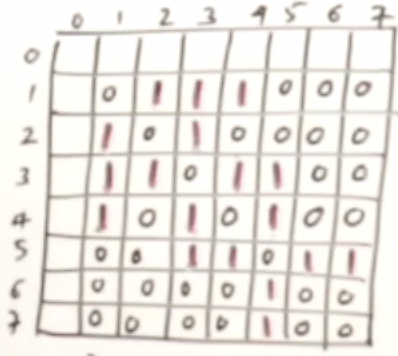 0 1 2 3 4 5 6 7
0
1 0 1 1 1 0 0 0
2 1 0 1 0 0 0 0
3 1 1 0 1 1 0 0
4 1 0 1 0 1 0 0
5 0 0 1 1 0 1 1
6 0 0 0 0 1 0 0
7 0 0 0 0 1 0 0